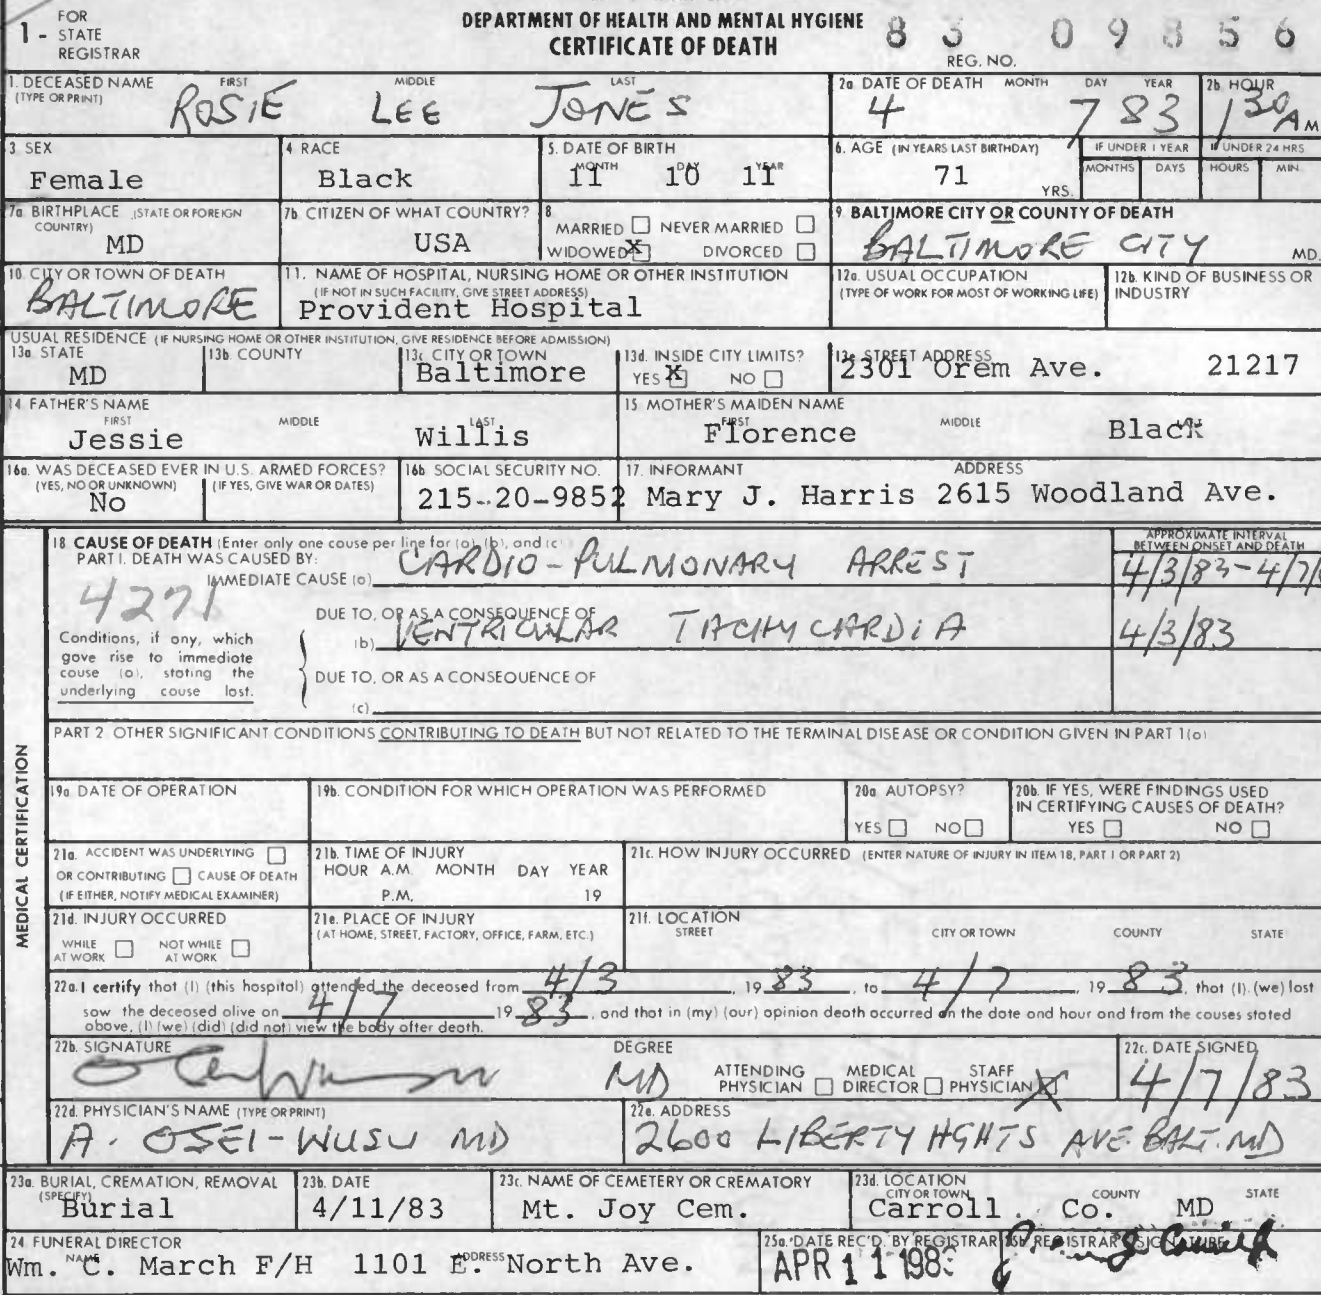 1 - FOR STATE REGISTRAR
DEPARTMENT OF HEALTH AND MENTAL HYGIENE
CERTIFICATE OF DEATH
83 09856
REG. NO.
1. DECEASED NAME (TYPE OR PRINT) FIRST MIDDLE LAST
ROSIE LEE JONES
2a. DATE OF DEATH MONTH DAY YEAR
4 7 83
2b. HOUR
1 30 A M
3. SEX
Female
4. RACE
Black
5. DATE OF BIRTH MONTH DAY YEAR
11 10 11
6. AGE (IN YEARS LAST BIRTHDAY)
71 YRS.
IF UNDER 1 YEAR MONTHS DAYS
IF UNDER 24 HRS HOURS MIN.
7a. BIRTHPLACE (STATE OR FOREIGN COUNTRY)
MD
7b. CITIZEN OF WHAT COUNTRY?
USA
8. MARRIED NEVER MARRIED
WIDOWED X DIVORCED
9. BALTIMORE CITY OR COUNTY OF DEATH
BALTIMORE CITY MD.
10. CITY OR TOWN OF DEATH
BALTIMORE
11. NAME OF HOSPITAL, NURSING HOME OR OTHER INSTITUTION
(IF NOT IN SUCH FACILITY, GIVE STREET ADDRESS)
Provident Hospital
12a. USUAL OCCUPATION
(TYPE OF WORK FOR MOST OF WORKING LIFE)
12b. KIND OF BUSINESS OR INDUSTRY
USUAL RESIDENCE (IF NURSING HOME OR OTHER INSTITUTION, GIVE RESIDENCE BEFORE ADMISSION)
13a. STATE
MD
13b. COUNTY
13c. CITY OR TOWN
Baltimore
13d. INSIDE CITY LIMITS?
YES X NO
13e. STREET ADDRESS
2301 Orem Ave. 21217
14. FATHER'S NAME FIRST MIDDLE LAST
Jessie Willis
15. MOTHER'S MAIDEN NAME FIRST MIDDLE LAST
Florence Black
16a. WAS DECEASED EVER IN U.S. ARMED FORCES?
(YES, NO OR UNKNOWN) (IF YES, GIVE WAR OR DATES)
No
16b. SOCIAL SECURITY NO.
215-20-9852
17. INFORMANT ADDRESS
Mary J. Harris 2615 Woodland Ave.
MEDICAL CERTIFICATION
18. CAUSE OF DEATH (Enter only one cause per line for (a), (b), and (c)
PART I. DEATH WAS CAUSED BY:
IMMEDIATE CAUSE (a) CARDIO-PULMONARY ARREST
APPROXIMATE INTERVAL BETWEEN ONSET AND DEATH
4/3/83-4/7/
4271
DUE TO, OR AS A CONSEQUENCE OF
(b) VENTRICULAR TACHYCARDIA
4/3/83
Conditions, if any, which gave rise to immediate cause (a), stating the underlying cause last.
DUE TO, OR AS A CONSEQUENCE OF
(c)
PART 2. OTHER SIGNIFICANT CONDITIONS CONTRIBUTING TO DEATH BUT NOT RELATED TO THE TERMINAL DISEASE OR CONDITION GIVEN IN PART 1(a)
19a. DATE OF OPERATION
19b. CONDITION FOR WHICH OPERATION WAS PERFORMED
20a. AUTOPSY?
YES NO
20b. IF YES, WERE FINDINGS USED IN CERTIFYING CAUSES OF DEATH?
YES NO
21a. ACCIDENT WAS UNDERLYING
OR CONTRIBUTING CAUSE OF DEATH
(IF EITHER, NOTIFY MEDICAL EXAMINER)
21b. TIME OF INJURY
HOUR A.M. MONTH DAY YEAR
P.M. 19
21c. HOW INJURY OCCURRED (ENTER NATURE OF INJURY IN ITEM 18, PART 1 OR PART 2)
21d. INJURY OCCURRED
WHILE AT WORK NOT WHILE AT WORK
21e. PLACE OF INJURY
(AT HOME, STREET, FACTORY, OFFICE, FARM, ETC.)
21f. LOCATION
STREET CITY OR TOWN COUNTY STATE
22a. I certify that (I) (this hospital) attended the deceased from 4/3, 19 83, to 4/7, 19 83, that (I) (we) last
saw the deceased alive on 4/7 19 83, and that in (my) (our) opinion death occurred on the date and hour and from the causes stated
above, (I) (we) (did) (did not) view the body after death.
22b. SIGNATURE
DEGREE
MD
ATTENDING PHYSICIAN MEDICAL DIRECTOR STAFF PHYSICIAN X
22c. DATE SIGNED
4/7/83
22d. PHYSICIAN'S NAME (TYPE OR PRINT)
A. OSEI-WUSU MD
22e. ADDRESS
2600 LIBERTY HGHTS AVE. BALT. MD
23a. BURIAL, CREMATION, REMOVAL (SPECIFY)
Burial
23b. DATE
4/11/83
23c. NAME OF CEMETERY OR CREMATORY
Mt. Joy Cem.
23d. LOCATION
CITY OR TOWN COUNTY STATE
Carroll Co. MD
24. FUNERAL DIRECTOR
NAME ADDRESS
Wm. C. March F/H 1101 E. North Ave.
25a. DATE REC'D. BY REGISTRAR
APR 11 1983
25b. REGISTRAR'S SIGNATURE